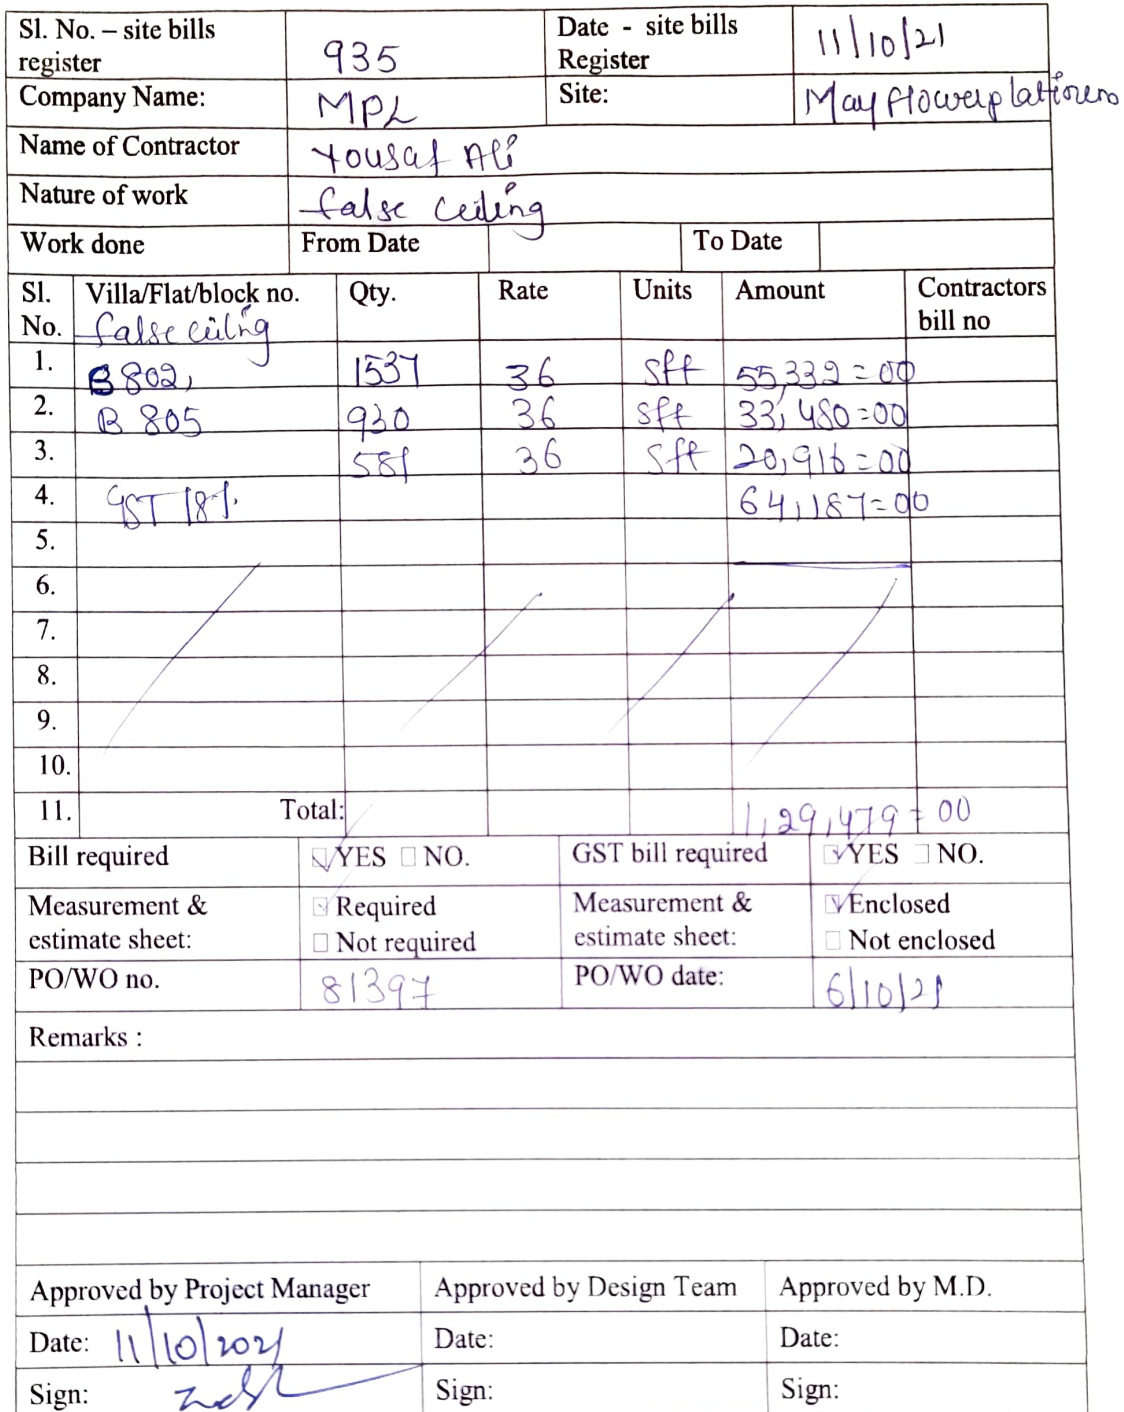 Sl. No. – site bills register 935 Date - site bills Register 11/10/21
Company Name: MPL Site: Mayflower platinum
Name of Contractor Yousaf Ali
Nature of work false ceiling
Work done From Date To Date
Sl. No. Villa/Flat/block no. Qty. Rate Units Amount Contractors bill no
false ceiling
1. B 802, 1537 36 sft 55,332=00
2. B 805 930 36 sft 33,480=00
3. 581 36 sft 20,916=00
4. GST 18%. 64,187=00
5.
6.
7.
8.
9.
10.
11. Total: 1,29,479=00
Bill required YES NO. GST bill required YES NO.
Measurement & estimate sheet: Required Measurement & estimate sheet: Enclosed
Not required Not enclosed
PO/WO no. 81397 PO/WO date: 6/10/21
Remarks :
Approved by Project Manager Approved by Design Team Approved by M.D.
Date: 11/10/2021 Date: Date:
Sign: Sign: Sign: